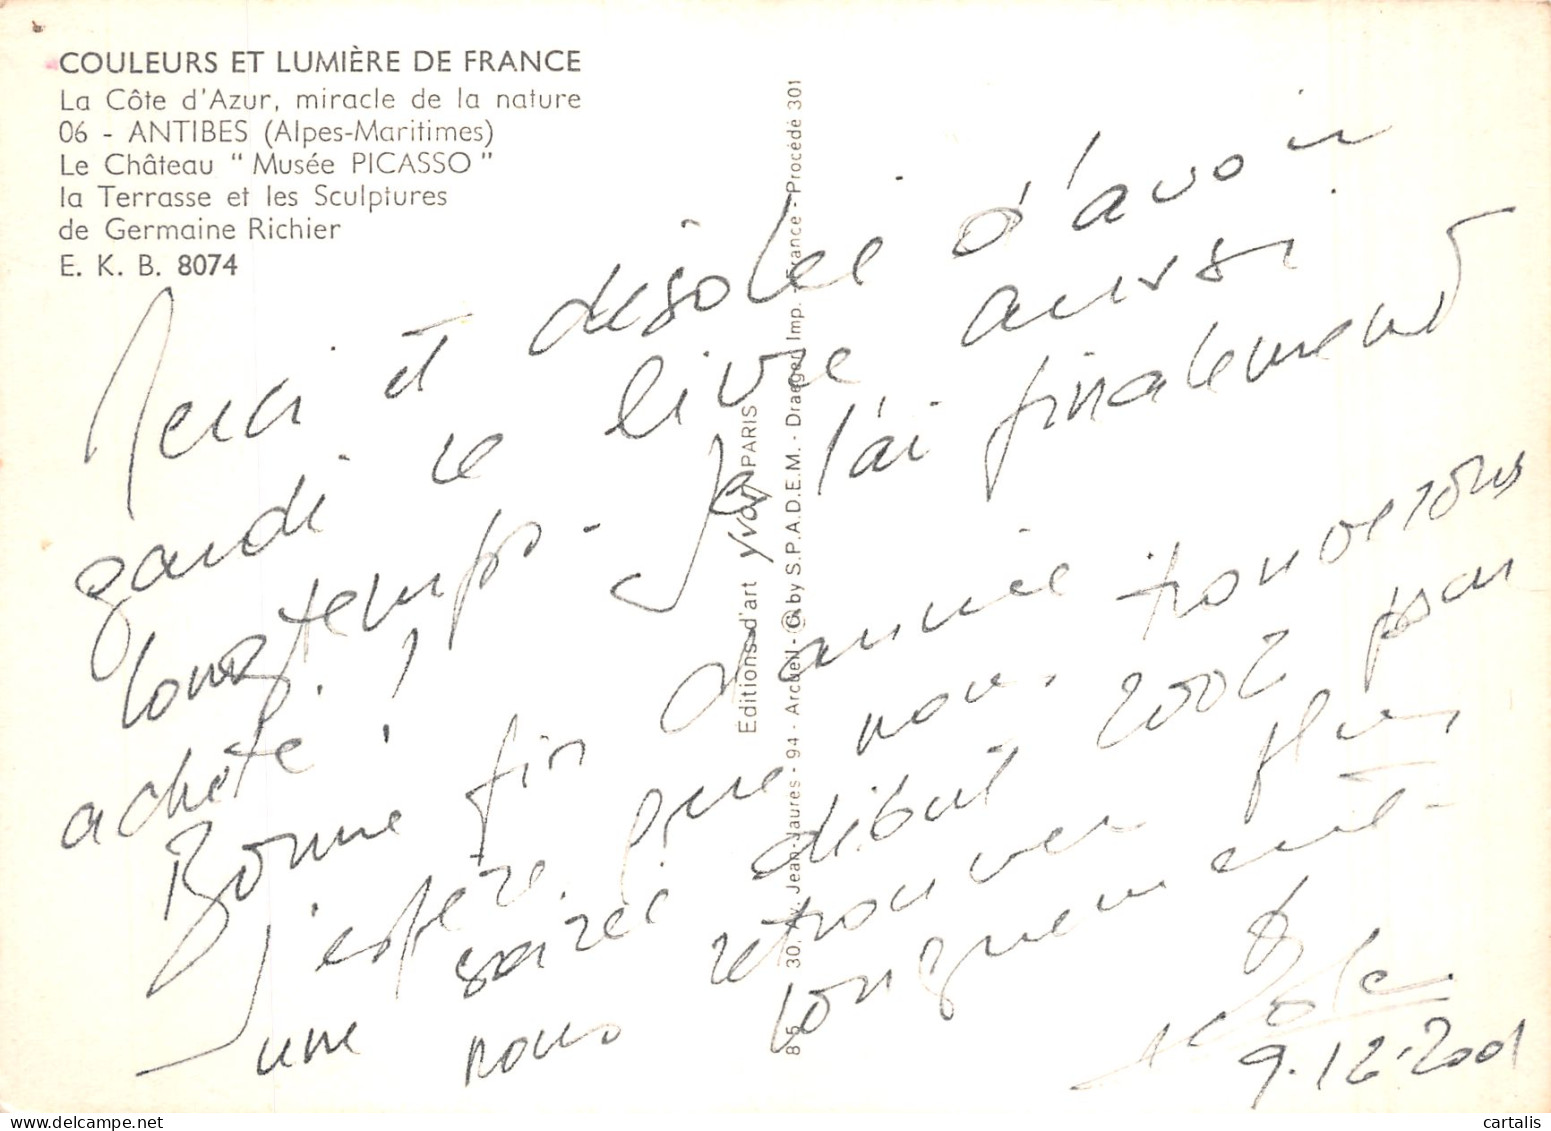 COULEURS ET LUMIÈRE DE FRANCE
La Côte d'Azur, miracle de la nature
06 - ANTIBES (Alpes-Maritimes)
Le Château "Musée PICASSO"
la Terrasse et les Sculptures
de Germaine Richier
E. K. B. 8074
Merci et désolée d'avoir
gardé ce livre aussi
longtemps - Je l'ai finalement
acheté !
Bonne fin d'année
J'espère que nous trouverons
une soirée début 2002 pour
nous retrouver plus
longuement -
9.12.2001
Editions d'art yvon PARIS
30, Av. Jean-Jaures - 94 - Arcueil - © by S.P.A.D.E.M. - Draeger Imp. - France - Procédé 301
cartalis